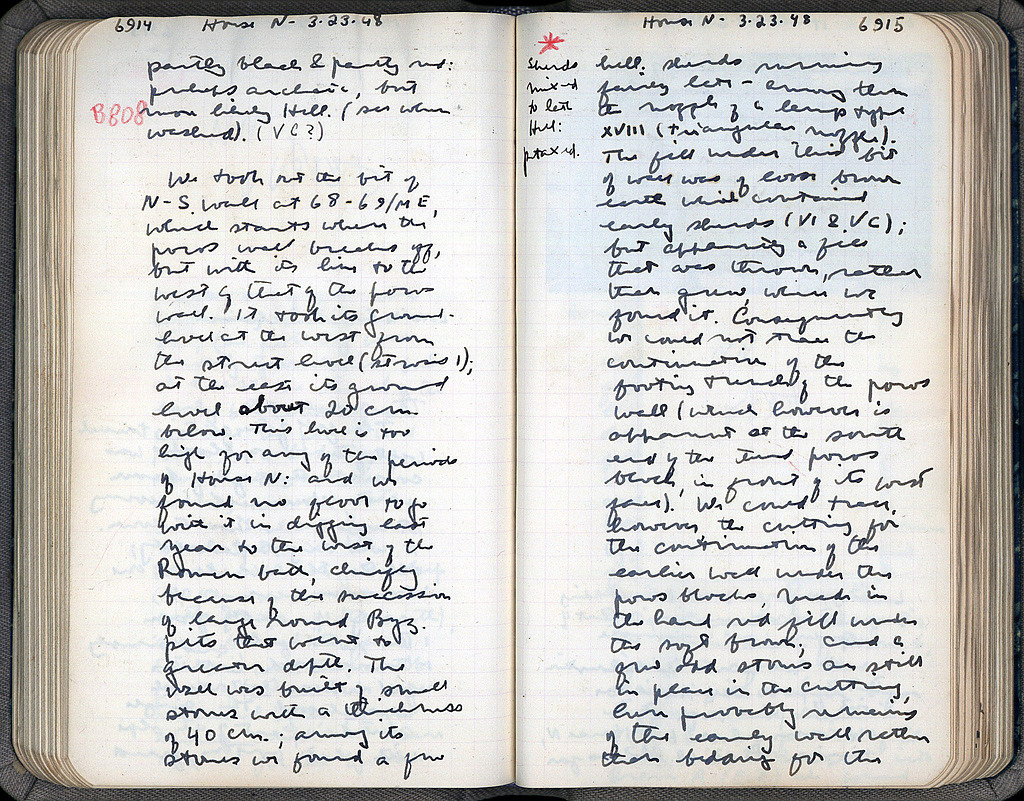 6914 House N - 3.23.48
partly black & partly red:
perhaps archaic, but
B808
more likely Hell. (see when
washed). (VC?)
We took out the bit of
N-S wall at 68-69/ME,
which starts where the
poros wall breaks off,
but with its line to the
west of that of the poros
wall. It took its ground-
level at the west from
the street level (stosis 1);
at the east its ground
level about 20 cm
below. This level is too
high for any of the periods
of House N: and we
found no floor to go
with it in digging last
year to the west of the
Roman bath, chiefly
because of the succession
of large round Byz.
pits that went to
greater depth. The
wall was built of small
stones with a thickness
of 40 cm.; among its
stones we found a few
House N - 3.23.48 6915
*
Sherds
mixed
to late
Hell:
hell. sherds running
fairly late - among them
the nozzle of a lamp type
XVIII (triangular nozzle).
The fill under this bit
of wall was of loose brown
earth which contained
early sherds (VI & VC);
but apparently a fill
that was thrown, rather
than grew, where we
found it. Consequently
we could not trace the
continuation of the
footing trench of the poros
wall (which however is
apparent at the south
end of the third poros
block, in front of its west
face). We could trace,
however, the cutting for
the continuation of the
earlier wall under the
poros blocks, made in
the hard red fill under
the soft brown; and a
few odd stones are still
in place in the cutting,
here probably remains
of the early wall rather
than bedding for the